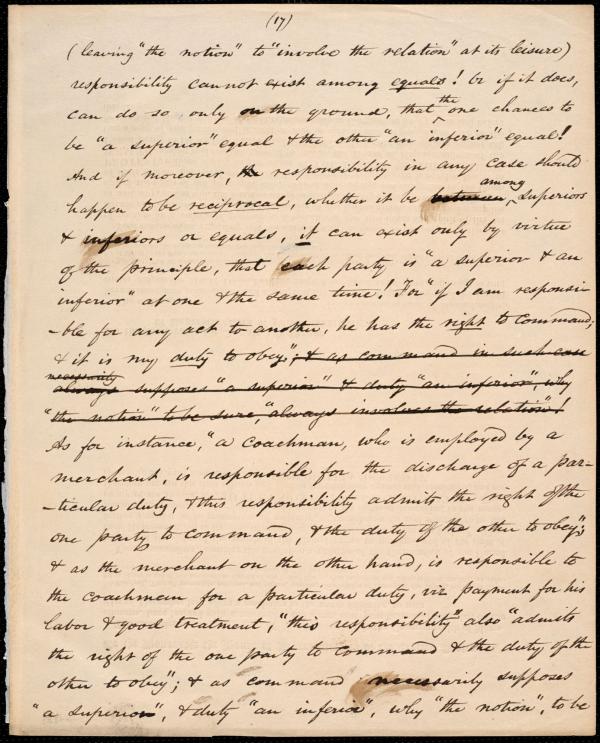 (17)
(leaving "the notion" to "involve the relation" at its leisure)
responsibility cannot exist among equals! or if it does,
can do so only on the ground, that the one chances to
be "a superior" equal & the other "an inferior" equal!
And if moreover, the responsibility in any case should
happen to be reciprocal, whether it be between among superiors
& inferiors or equals, it can exist only by virtue
of the principle, that each party is "a superior & an
inferior" at one & the same time! For "if I am responsi-
-ble for any act to another, he has the right to command,
& it is my duty to obey"; & as command in such case
necessarily
always supposes "a superior" & duty "an inferior", why
"the notion" to be sure, "always involves the relation"!
As for instance, "a coachman, who is employed by a
merchant, is responsible for the discharge of a par-
-ticular duty, & this responsibility admits the right of the
one party to command, & the duty of the other to obey";
& as the merchant on the other hand, is responsible to
the coachman for a particular duty, viz payment for his
labor & good treatment, "this responsibility" also "admits
the right of the one party to command & the duty of the
other to obey"; & as command necessarily supposes
"a superior", & duty "an inferior", why "the notion", to be